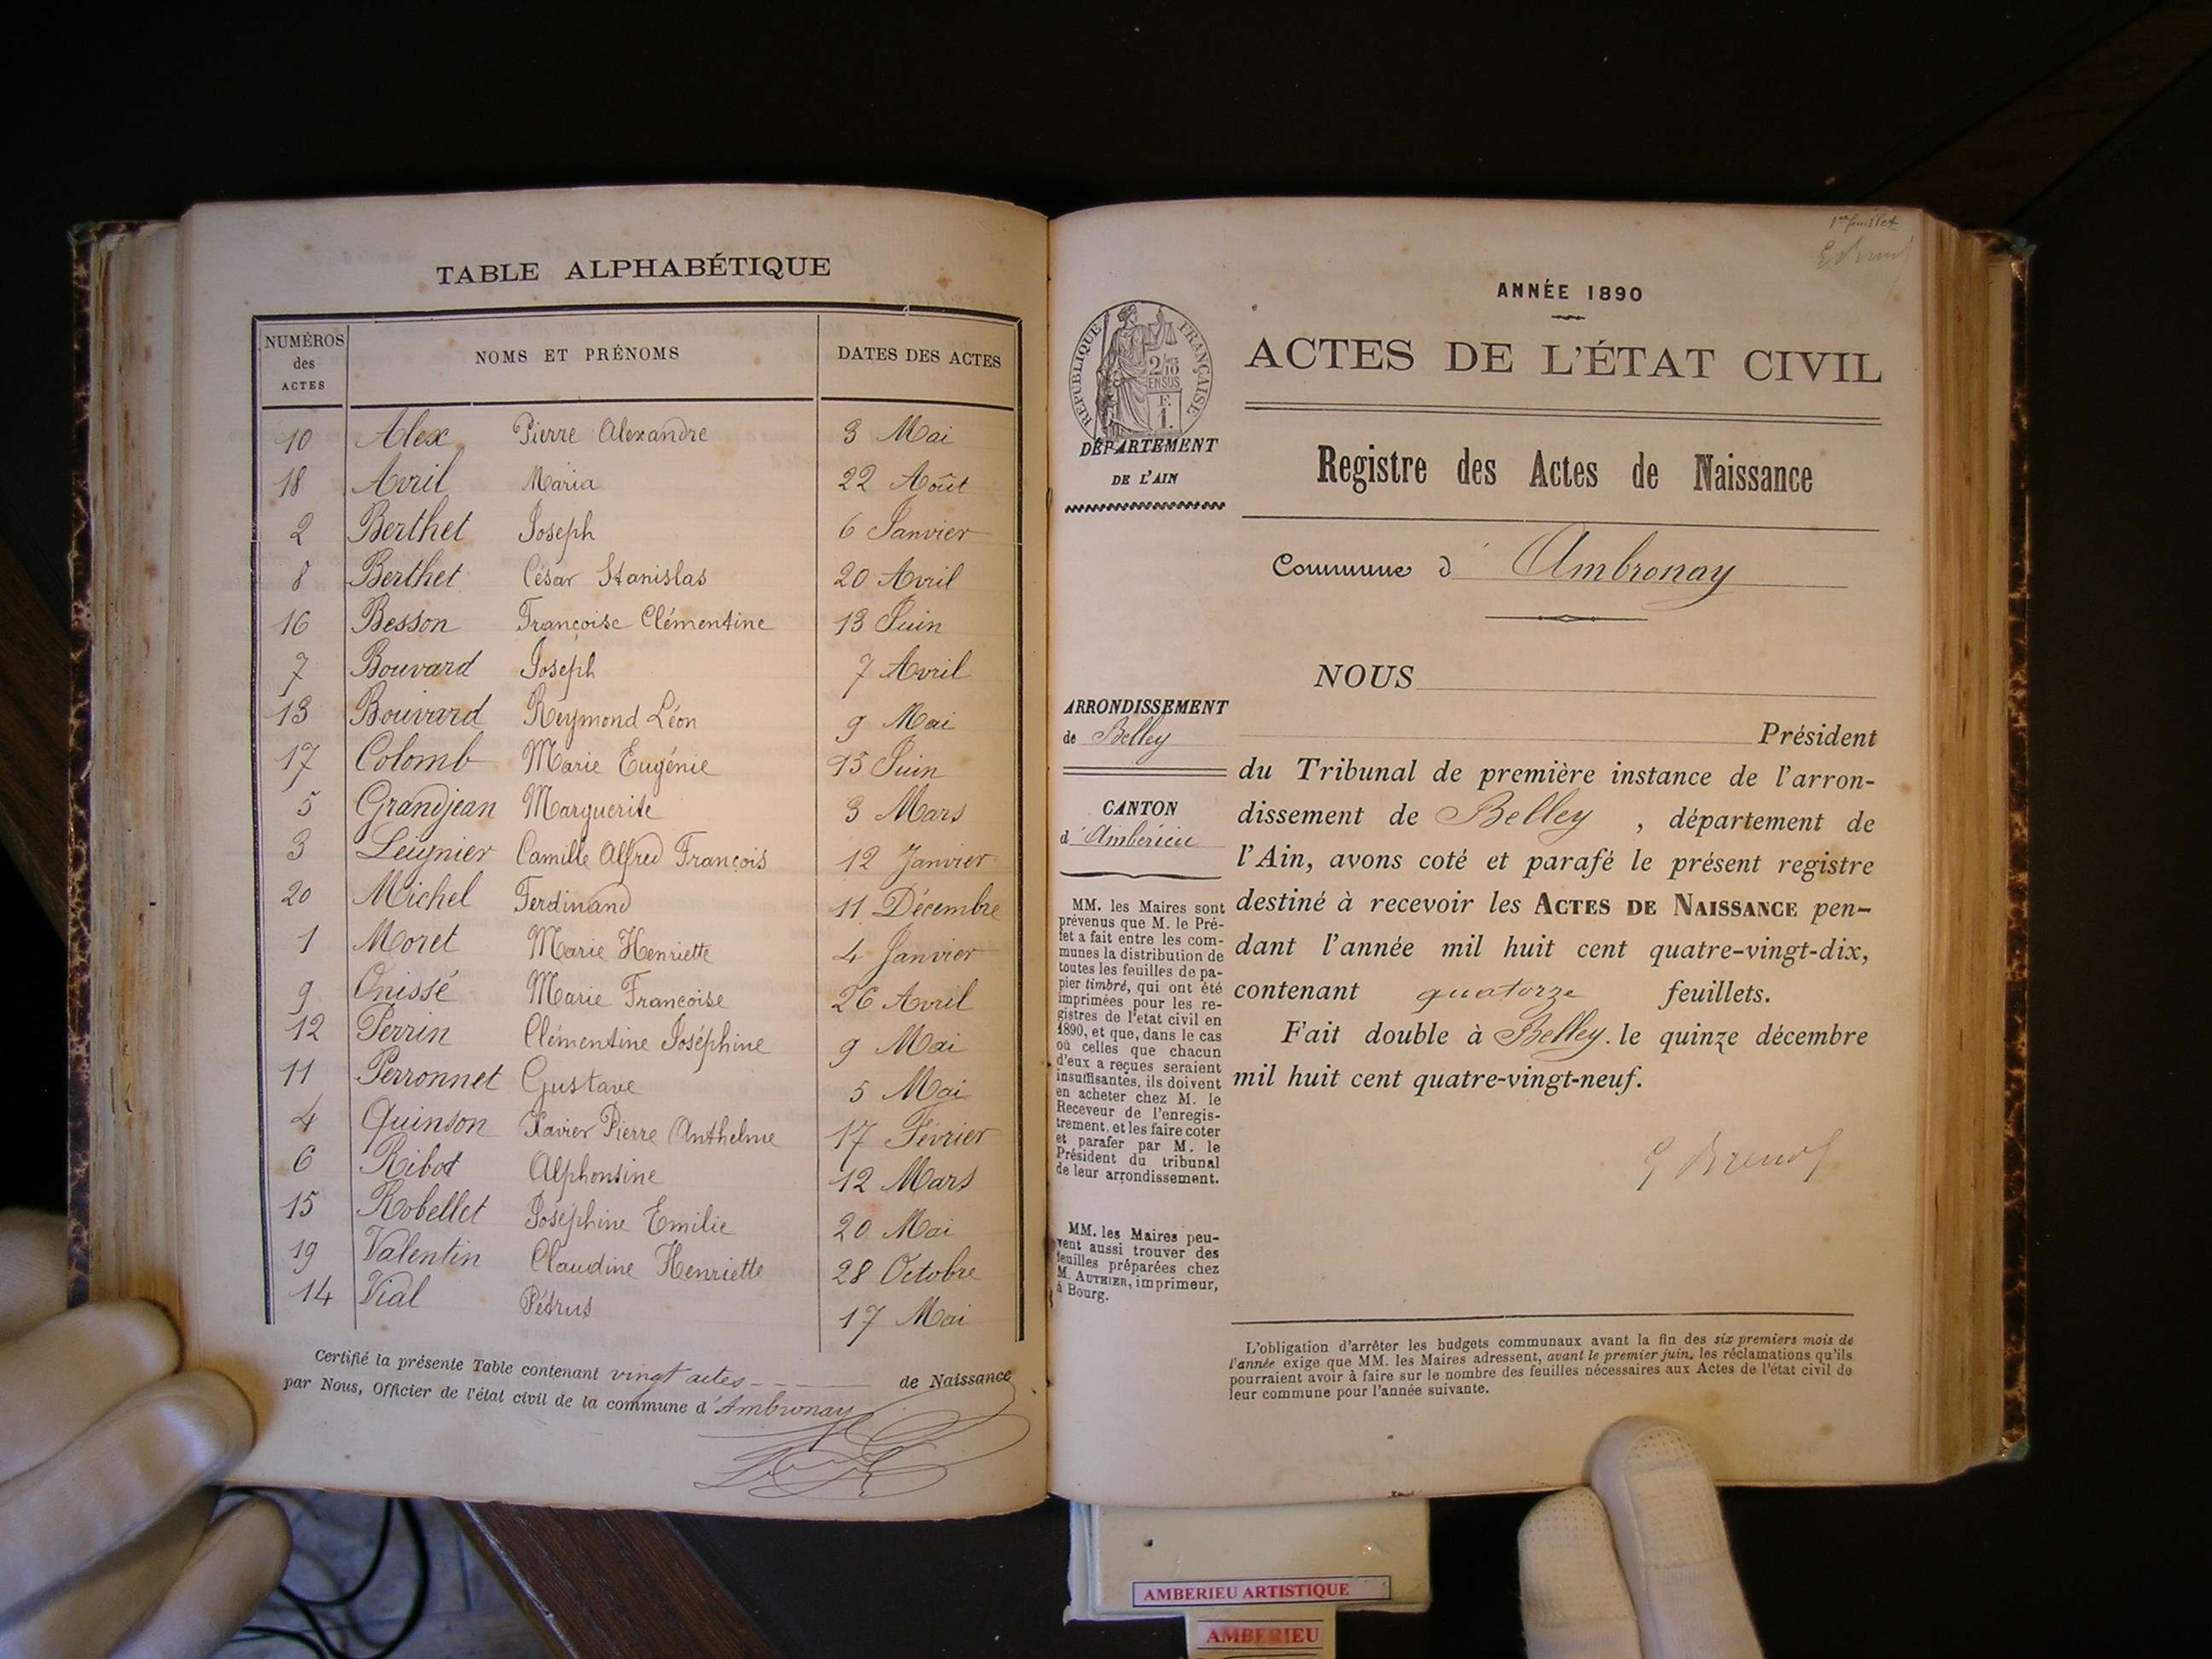 TABLE ALPHABÉTIQUE
NUMÉROS des ACTES NOMS ET PRÉNOMS DATES DES ACTES
10 Alex Pierre Alexandre 3 Mai
18 Avril Maria 22 Août
2 Berthet Joseph 6 Janvier
8 Berthet César Stanislas 20 Avril
16 Besson Françoise Clémentine 13 Juin
7 Bouvard Joseph 7 Avril
13 Bouvard Reymond Léon 9 Mai
17 Colomb Marie Eugénie 15 Juin
5 Grandjean Marguerite 3 Mars
3 Leignier Camille Alfred François 12 Janvier
20 Michel Ferdinand 11 Décembre
1 Moret Marie Henriette 4 Janvier
9 Onissé Marie Francoise 26 Avril
12 Perrin Clémentine Joséphine 9 Mai
11 Perronnet Gustave 5 Mai
4 Quinson Xavier Pierre Anthelme 17 Février
6 Ribot Alphonsine 12 Mars
15 Robellet Joséphine Emilie 20 Mai
19 Valentin Claudine Henriette 28 Octobre
14 Vial Pétrus 17 Mai
Certifié la présente Table contenant vingt actes de Naissance
par Nous, Officier de l'état civil de la commune d'Ambronay
1er feuillet
ANNÉE 1890
RÉPUBLIQUE FRANÇAISE
2/10
EN SUS
F.
1.
ACTES DE L'ÉTAT CIVIL
DÉPARTEMENT
DE L'AIN
Registre des Actes de Naissance
Commune d' Ambronay
NOUS
ARRONDISSEMENT
de Belley
CANTON
d'Ambérieu
MM. les Maires sont
prévenus que M. le Pré-
fet a fait entre les com-
munes la distribution de
toutes les feuilles de pa-
pier timbré, qui ont été
imprimées pour les re-
gistres de l'etat civil en
1890, et que, dans le cas
où celles que chacun
d'eux a reçues seraient
insuffisantes, ils doivent
en acheter chez M. le
Receveur de l'enregis-
trement, et les faire coter
et parafer par M. le
Président du tribunal
de leur arrondissement.
MM. les Maires peu-
vent aussi trouver des
feuilles préparées chez
M. AUTHIER, imprimeur,
à Bourg.
Président
du Tribunal de première instance de l'arron-
dissement de Belley , département de
l'Ain, avons coté et parafé le présent registre
destiné à recevoir les ACTES DE NAISSANCE pen-
dant l'année mil huit cent quatre-vingt-dix,
contenant quatorze feuillets.
Fait double à Belley. le quinze décembre
mil huit cent quatre-vingt-neuf.
L'obligation d'arrêter les budgets communaux avant la fin des six premiers mois de
l'année exige que MM. les Maires adressent, avant le premier juin, les réclamations qu'ils
pourraient avoir à faire sur le nombre des feuilles nécessaires aux Actes de l'état civil de
leur commune pour l'année suivante.
AMBERIEU ARTISTIQUE
AMBERIEU